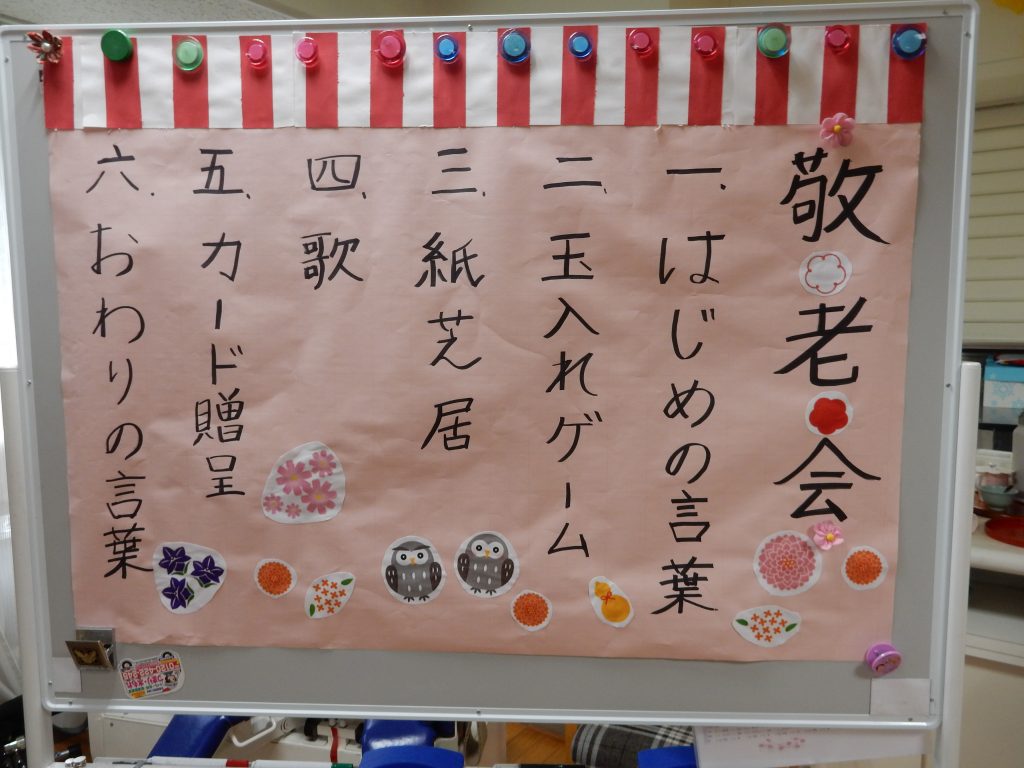 敬老会
一、はじめの言葉
二、玉入れゲーム
三、紙芝居
四、歌
五、カード贈呈
六、おわりの言葉